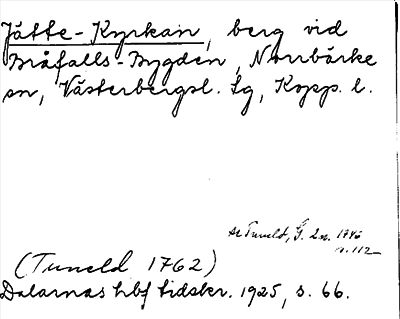 Jätte-Kyrkan, berg vid
Bråfalls-Bygden, Norrbärke
sn, Västerbergsl. Lg, Kopp. l.
se Tuneld, G. 2n. 1746
s. 112
(Tuneld 1762)
Dalarnas hbf tidskr. 1925, s. 66.